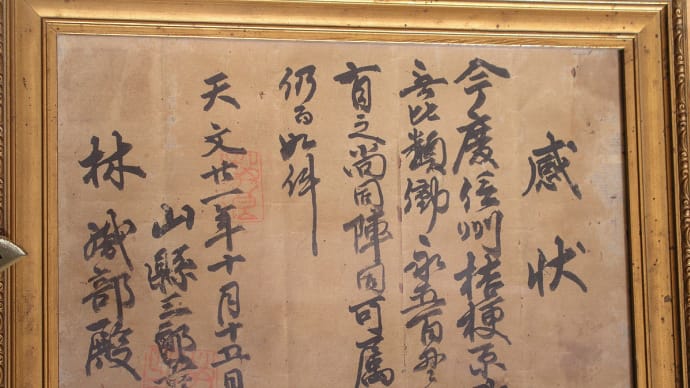 感状
今度信州桔梗原
無比類働永五百
有之尚同陣因可属
仍而如件
天文廿一年十月十五日
山縣三郎
林織部殿